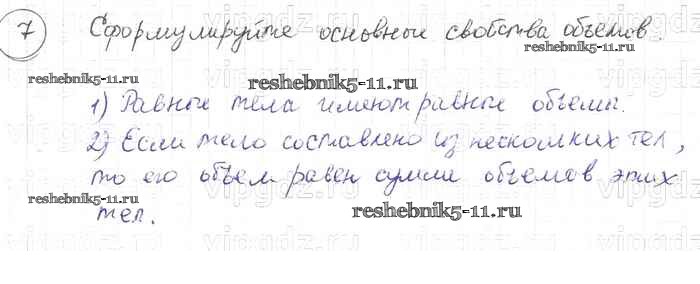 7 Сформулируйте основные свойства объемов.
reshebnik5-11.ru. reshebnik5-11.ru.
1) Равные тела имеют равные объемы.
2) Если тело составлено из нескольких тел,
то его объем равен сумме объемов этих
reshebnik5-11.ru. reshebnik5-11.ru.
тел.